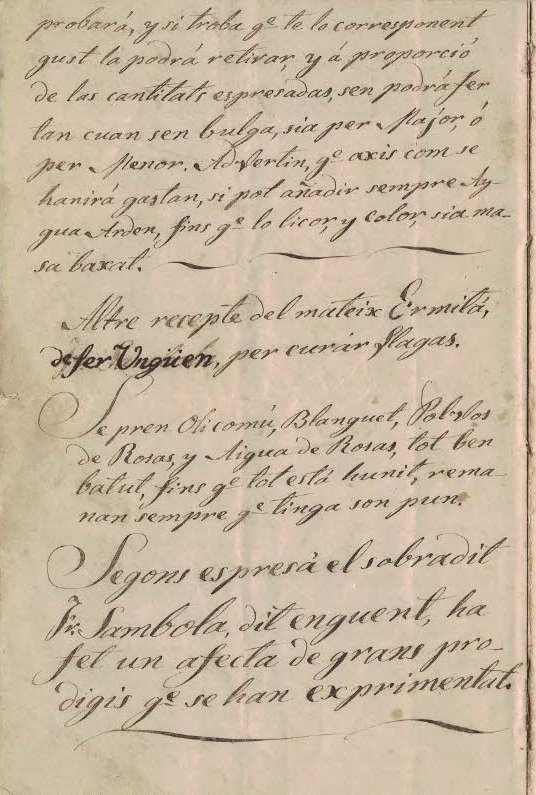 probará, y si troba qᵉ te lo corresponent
gust la podrá retirar, y á proporció
de las cantitats espresadas, sen podrá fer
tan cuan sen bulga, sia per Major, ó
per Menor. Advertin, qᵉ axis com se
hanirá gastan, si pot añadir sempre Ay-
gua Arden, fins qᵉ lo licor, y color, sia ma-
sa baxat.
Altre recepte del mateix Ermitá,
de fer Ungüen, per curár Llagas.
Se pren Oli comú, Blanquet, Polvos
de Rosas, y Aigua de Rosas, tot ben
batut, fins qᵉ tot está hunit, rema-
nan sempre qᵉ tinga son pun.
Segons espresá el sobradit
Fr. Sambola, dit enguent, ha
fet un afecta de grans pro-
digis qᵉ se han exprimentat.